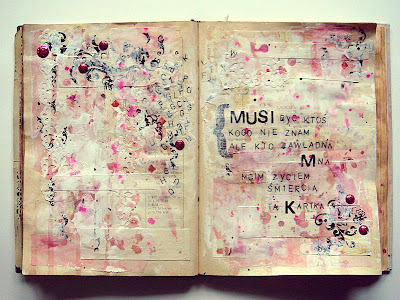 MUSI BYĆ KTOŚ
KOGO NIE ZNAM
ALE KTO ZAWŁADNĄ
MNĄ
MOIM ŻYCIEM
ŚMIERCIĄ
TĄ KARTKĄ